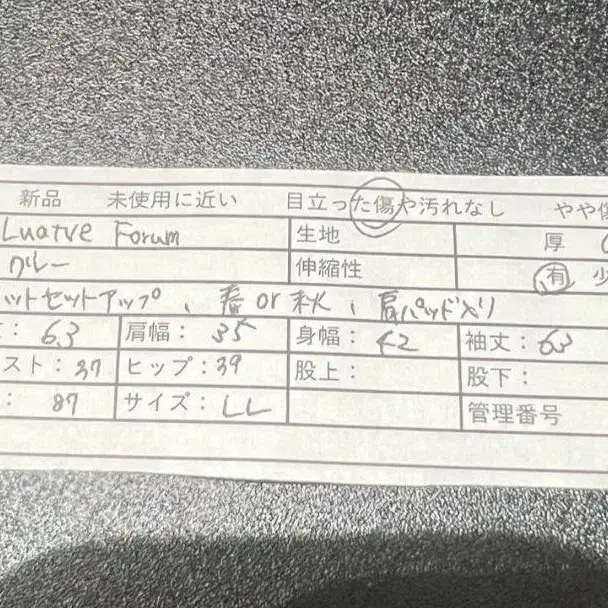 新品 未使用に近い 目立った傷や汚れなし やや傷
Luatve Forum 生地 厚
グレー 伸縮性 有 少
ットセットアップ、春or秋、肩パッド入り
: 63 肩幅: 35 身幅: 42 袖丈: 63
スト: 37 ヒップ: 39 股上: 股下:
: 87 サイズ: LL 管理番号